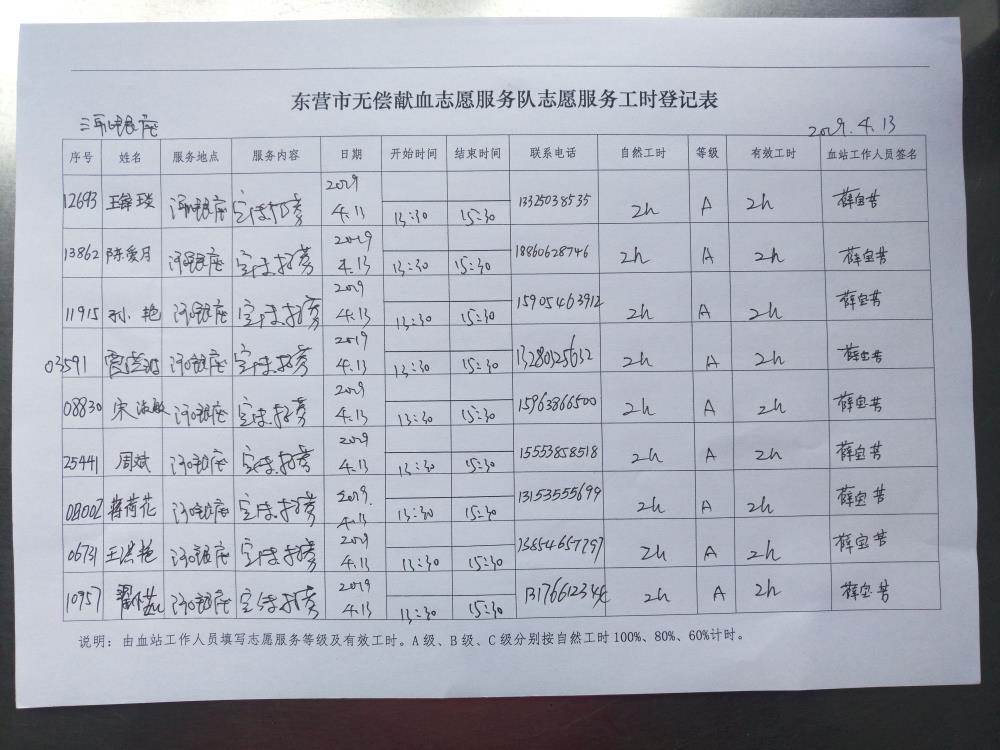 东营市无偿献血志愿服务队志愿服务工时登记表
银座 2019.4.13
序号 姓名 服务地点 服务内容 日期 开始时间 结束时间 联系电话 自然工时 等级 有效工时 血站工作人员签名
12693 银座 宣传招募 2019 4.13 13:30 15:30 13325038535 2h A 2h 薛宝芳
13862 陈爱月 银座 宣传招募 2019 4.13 13:30 15:30 18860628746 2h A 2h 薛宝芳
11915 孙艳 银座 宣传招募 2019 4.13 13:30 15:30 15905463912 2h A 2h 薛宝芳
03591 银座 宣传招募 2019 4.13 13:30 15:30 13280125632 2h A 2h 薛宝芳
08830 宋淑敏 银座 宣传招募 2019 4.13 13:30 15:30 15963866500 2h A 2h 薛宝芳
25441 周斌 银座 宣传招募 2019 4.13 13:30 15:30 15553858518 2h A 2h 薛宝芳
蒋荷花 银座 宣传招募 2019 4.13 13:30 15:30 13153555699 2h A 2h 薛宝芳
06731 王洪艳 银座 宣传招募 2019 4.13 13:30 15:30 2h A 2h 薛宝芳
10957 银座 宣传招募 2019 4.13 13:30 15:30 2h A 2h 薛宝芳
说明：由血站工作人员填写志愿服务等级及有效工时。A级、B级、C级分别按自然工时100%、80%、60%计时。